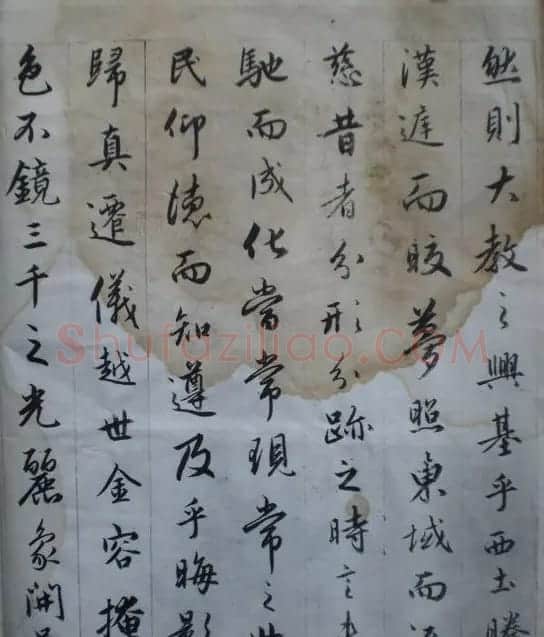 然則大教之興基乎西土騰
漢庭而皎夢照東域而
慈昔者分形分跡之時言
馳而成化當常現常之世
民仰德而知遵及乎晦影
歸真遷儀越世金容掩
色不鏡三千之光麗象開
Shufaziliao.COM